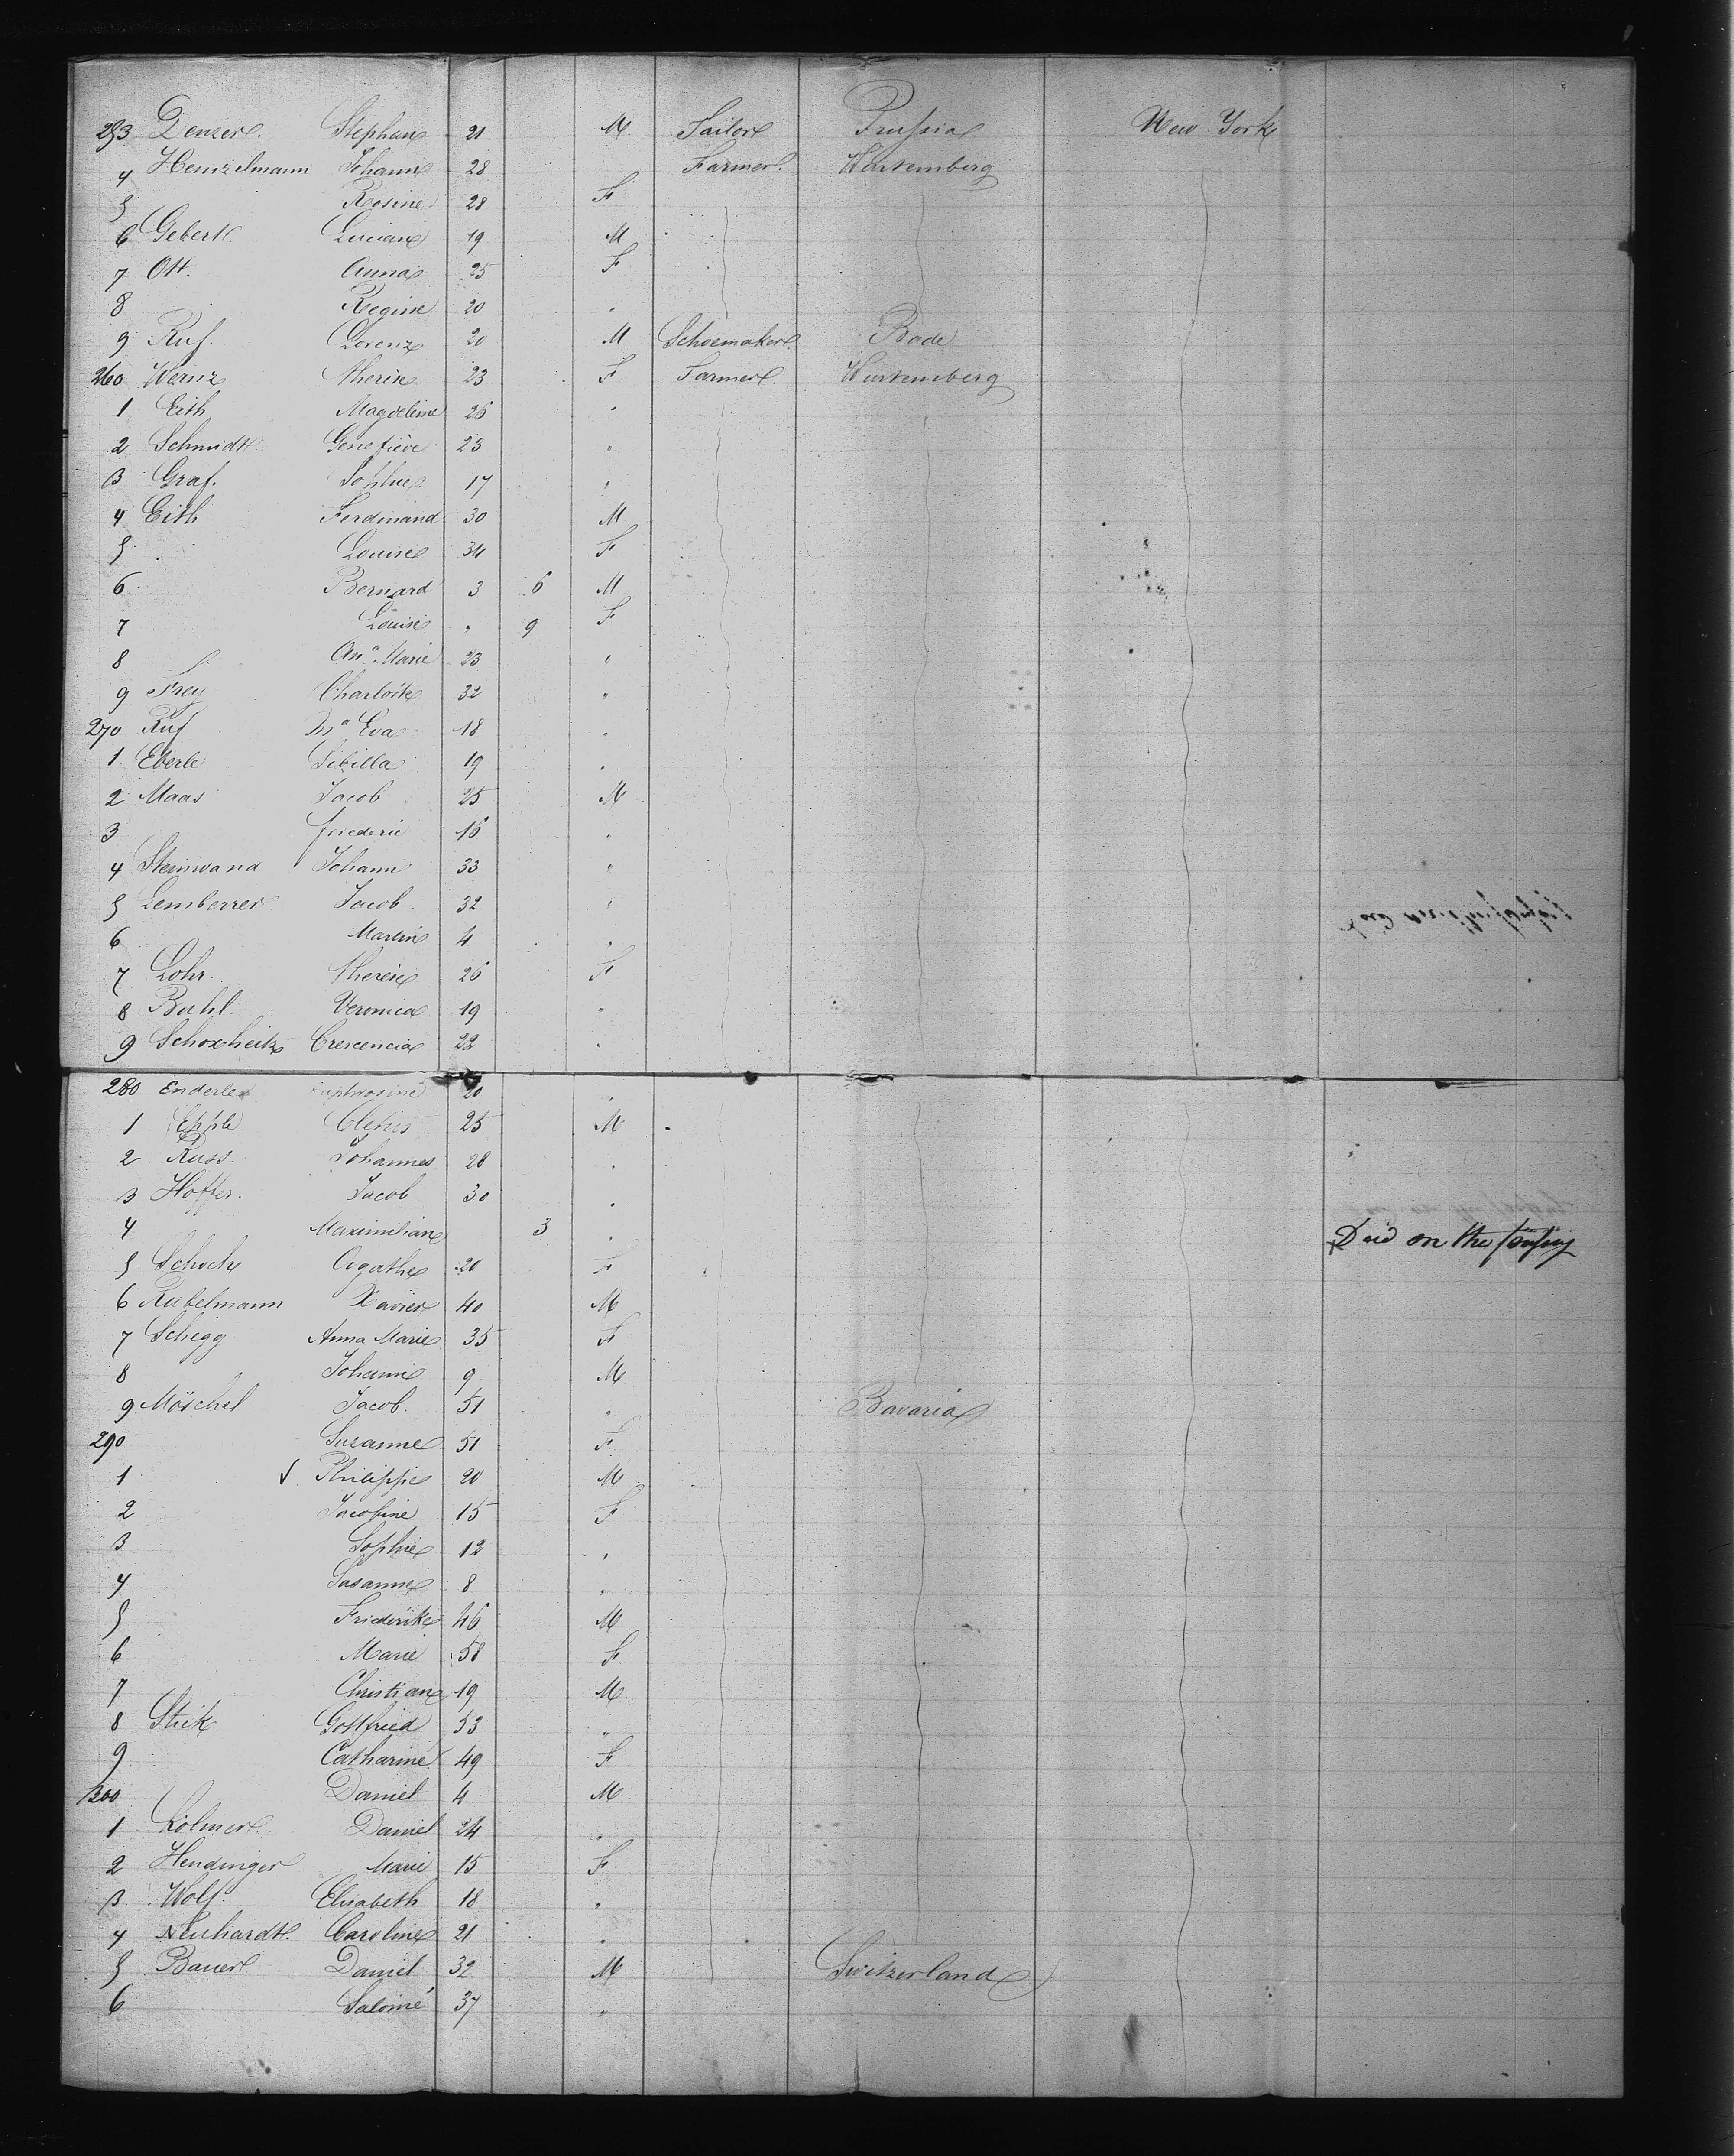 253 Denzer Stephan 21 M. Tailor Prussia New York
4 Henzelmann Johann 28 Farmer. Wurtemberg
5 Rosine 28 F
6 Gebert Lucian 19 M
7 Ott. Anna 25 F
8 Regine 20 "
9 Ruf. Lorenz 20 M Schoemaker. Bade
260 Wernz Therese 23 F Farmer Wurtemberg
1 Eith Magdeline 26 "
2 Schmidt Genefiève 23 "
3 Graf. Sophie 17 "
4 Eith Ferdinand 30 M
5 Louise 34 F
6 Bernard 3 6 M
7 Louise " 9 F
8 Anª Marie 23 "
9 Frey Charlotte 32 "
270 Ruf Mª Eva 18 "
1 Eberle Sibilla 19 "
2 Maas Jacob 25 M
3 frederic 16 "
4 Steinwand Johann 33 "
5 Lemberrer Jacob 32 "
6 Martin 4 "
7 Lohr. Therese 26 F
8 Buhl. Veronica 19 "
9 Crescencia 22 "
280 Enderle Euphrosine 20 "
1 Epple Cletus 25 M
2 Russ. Johannes 28 "
3 Hoffer. Jacob 30 "
4 Maximilian 3 " Died on the
5 Schoch Agathe 20 F
6 Rubelmann Xavier 40 M
7 Schegg Anna Marie 35 F
8 Johann 9 M
9 Möschel Jacob. 51 " Bavaria
290 Suzanne 51 F
1 Philippe 20 M
2 Jacobine 15 F
3 Sophie 12 "
4 Susanne 8 "
5 Friederike 46 M
6 Marie 58 F
7 Christian 19 M
8 Stick Gottfried 53 "
9 Catharine 49 F
300 Daniel 4 M
1 Kolmer Daniel 24 "
2 Hendinger Marie 15 F
3 Wolf. Elisabeth 18 "
4 Neuhardt. Caroline 21 "
5 Bauer Daniel 32 M Switzerland
6 Salomé 37 "